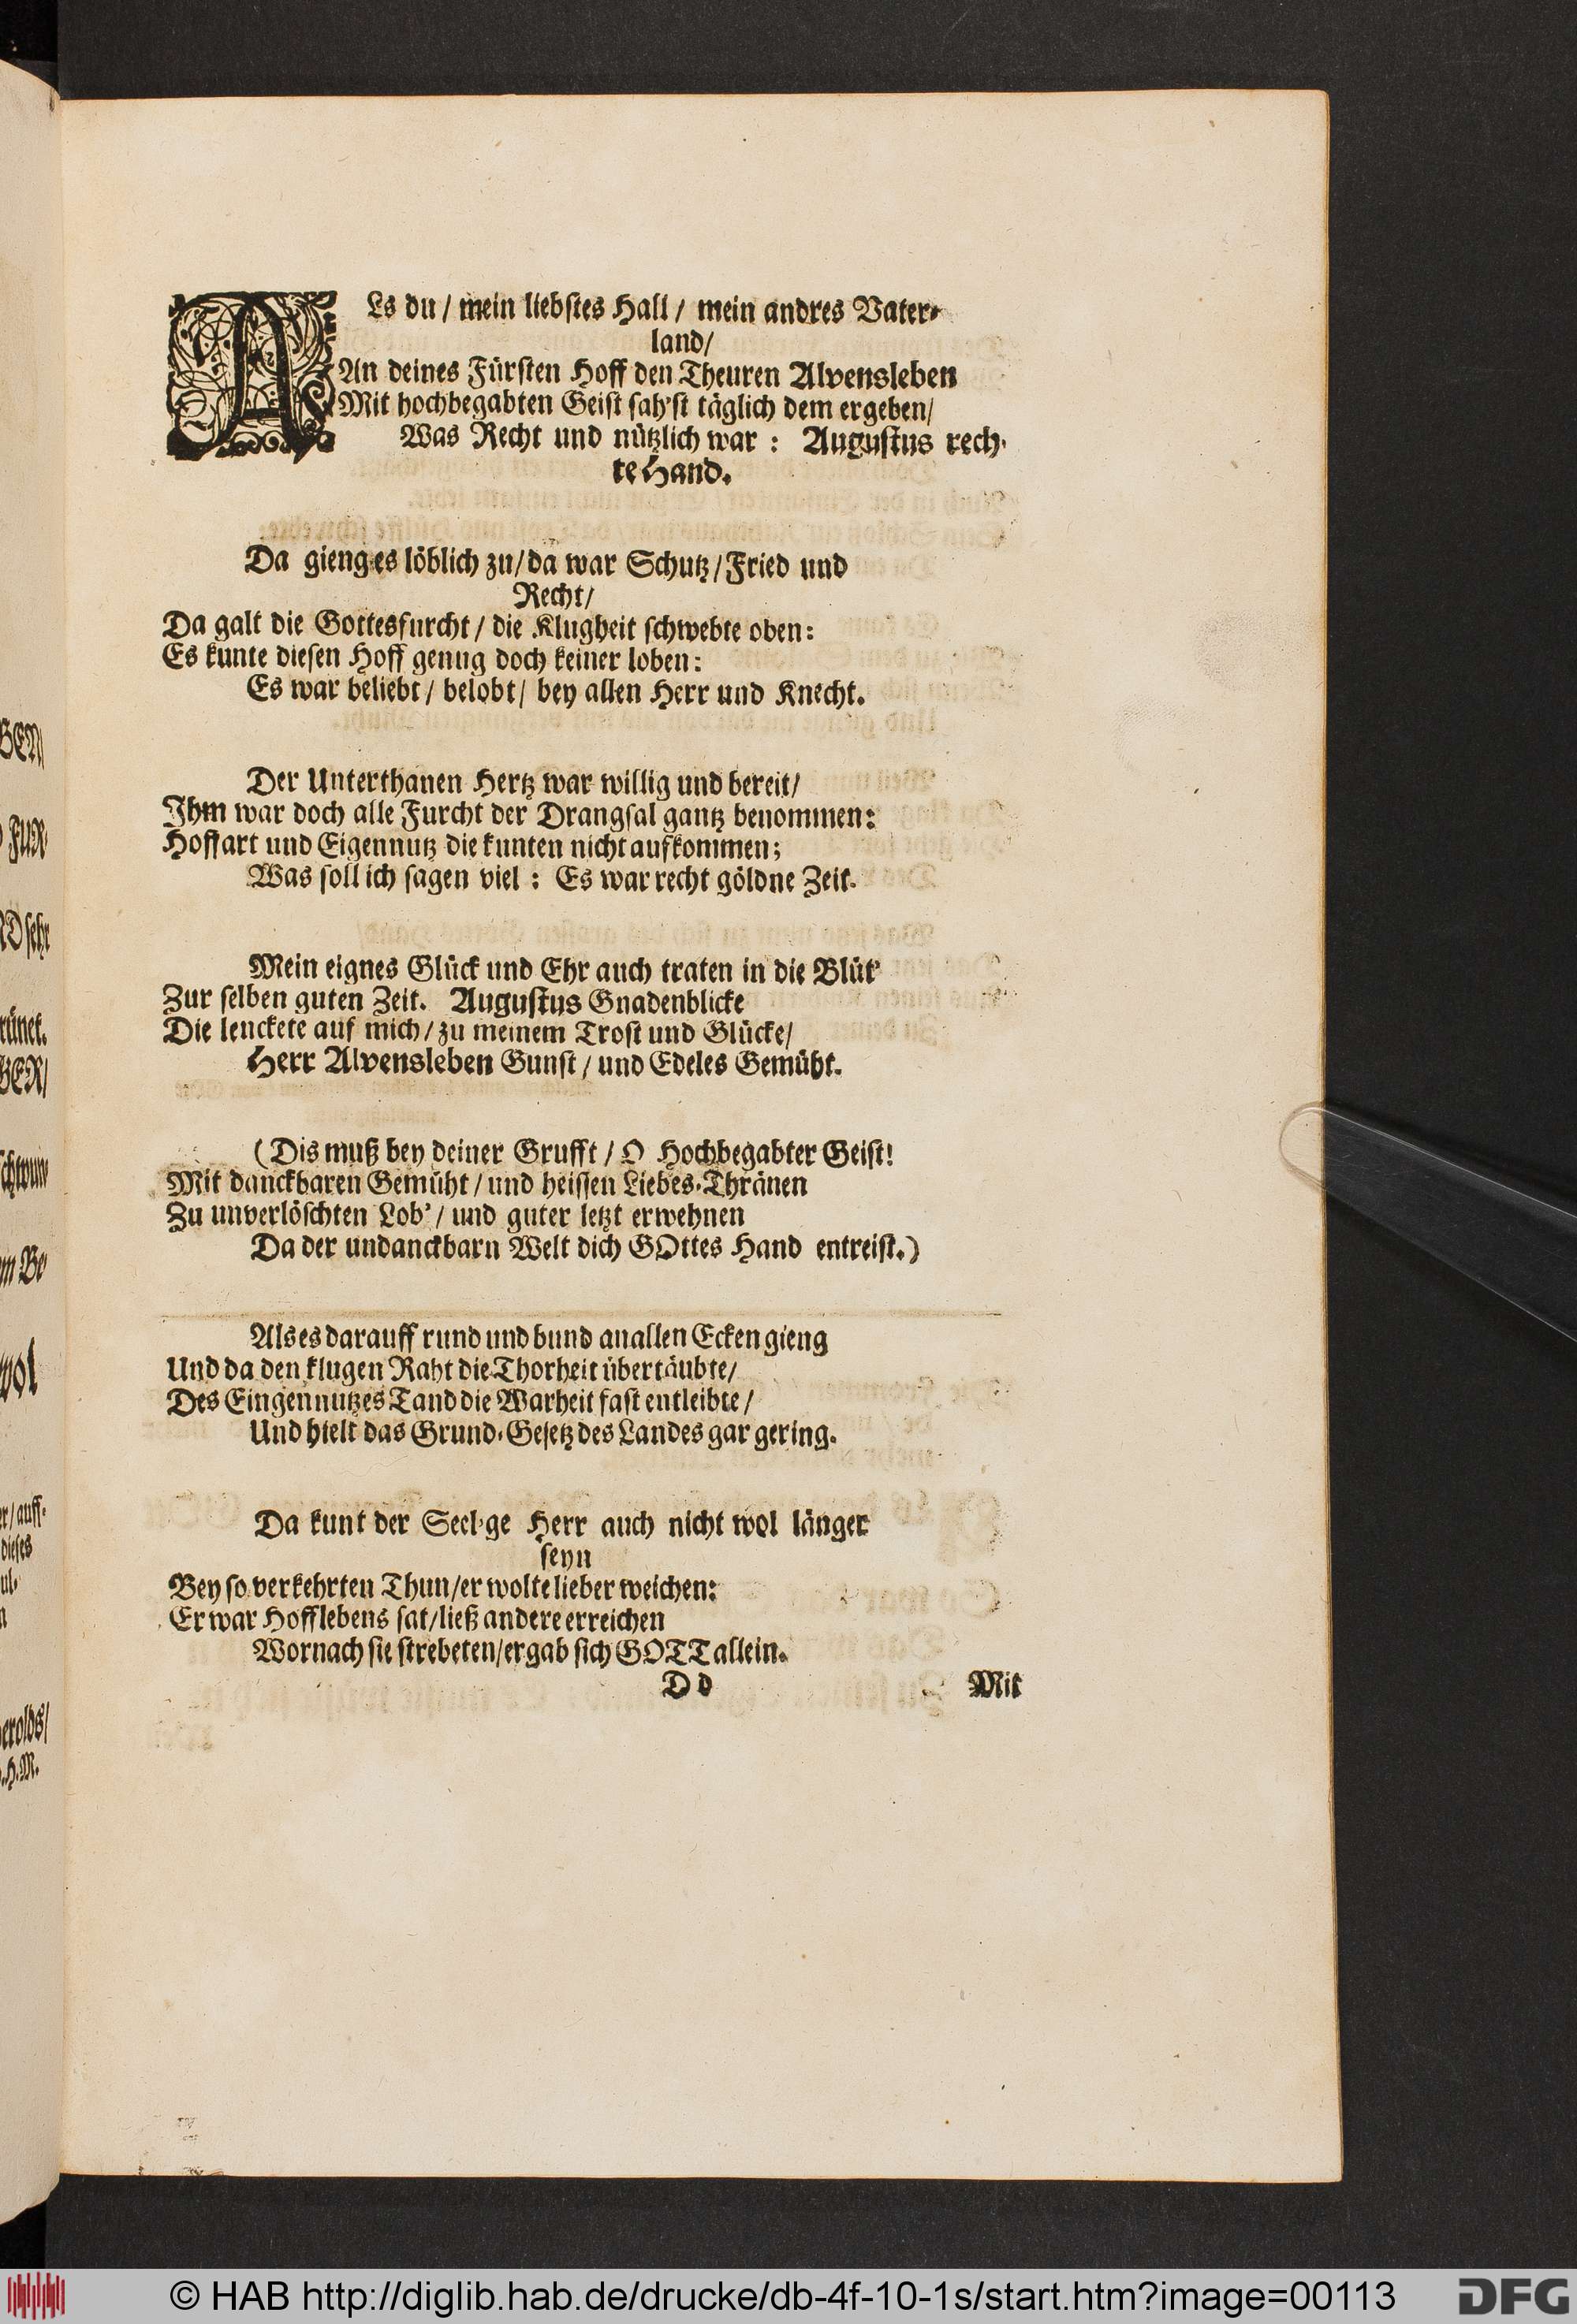 ALs du / mein liebstes Hall / mein andres Vater-
land/
An deines Fürsten Hoff den Theuren Alvensleben
Mit hochbegabten Geist sah'st täglich dem ergeben/
Was Recht und nützlich war : Augustus rech-
te Hand.
Da gieng es löblich zu/ da war Schutz/ Fried und
Recht/
Da galt die Gottesfurcht / die Klugheit schwebte oben:
Es kunte diesen Hoff genug doch keiner loben:
Es war beliebt / belobt / bey allen Herr und Knecht.
Der Unterthanen Hertz war willig und bereit/
Ihm war doch alle Furcht der Drangsal gantz benommen:
Hoffart und Eigennutz die kunten nicht aufkommen;
Was soll ich sagen viel : Es war recht göldne Zeit.
Mein eignes Glück und Ehr auch traten in die Blüt'
Zur selben guten Zeit. Augustus Gnadenblicke
Die lenckete auf mich / zu meinem Trost und Glücke/
Herr Alvensleben Gunst / und Edeles Gemüht.
(Dis muß bey deiner Grufft / O Hochbegabter Geist!
Mit danckbaren Gemüht / und heissen Liebes-Thränen
Zu unverlöschten Lob' / und guter letzt erwehnen
Da der undanckbarn Welt dich GOttes Hand entreist.)
Als es darauff rund und bund an allen Ecken gieng
Und da den klugen Raht die Thorheit übertäubte/
Des Eingennutzes Tand die Warheit fast entleibte /
Und hielt das Grund-Gesetz des Landes gar gering.
Da kunt der Seel-ge Herr auch nicht wol länger
seyn
Bey so verkehrten Thun/ er wolte lieber weichen:
Er war Hofflebens sat/ ließ andere erreichen
Wornach sie strebeten/ ergab sich GOTT allein.
D d Mit
© HAB http://diglib.hab.de/drucke/db-4f-10-1s/start.htm?image=00113
DFG